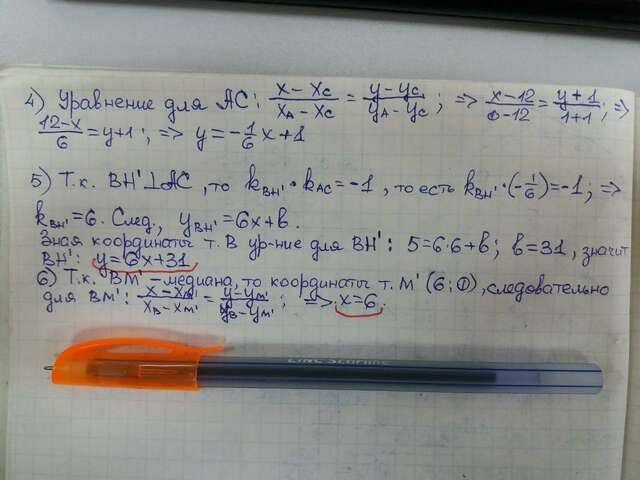 4) Уравнение для AC: (x - x_C)/(x_A - x_C) = (y - y_C)/(y_A - y_C) ; => (x-12)/(0-12) = (y+1)/(1+1) ; =>
(12-x)/6 = y+1 ; => y = -1/6 x + 1
5) Т.к. BH' ⊥ AC , то k_BH' · k_AC = -1 , то есть k_BH' · (-1/6) = -1 ; =>
k_BH' = 6. След., y_BH' = 6x + b.
Зная координаты т. B ур-ние для BH' : 5 = 6·6 + b ; b = 31 , значит
BH' : y = 6x + 31
6) Т.к. BM' - медиана, то координаты т. M' (6 ; 0) , следовательно
для BM' : (x - x_M')/(x_B - x_M') = (y - y_M')/(y_B - y_M') ; => x = 6.